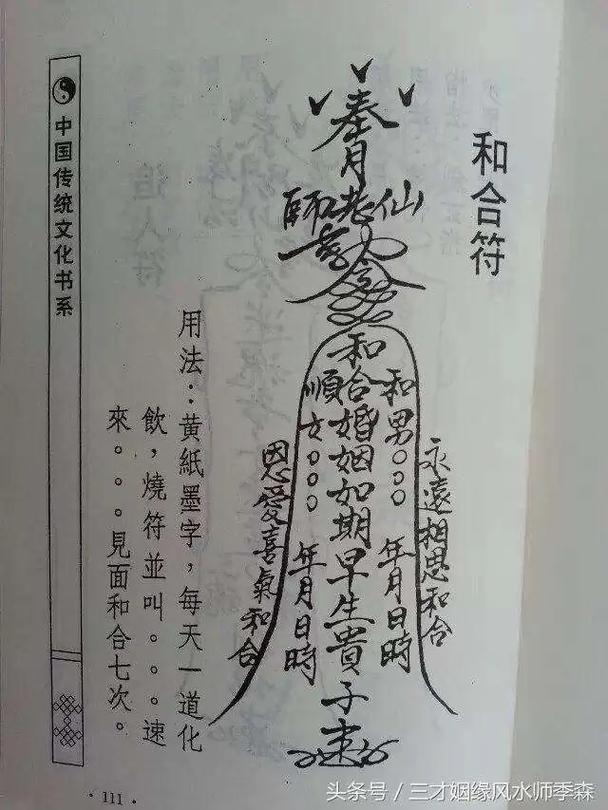 和合符
奉月
仙老師
令
永遠相思和合
和男○○○ 年月日時
和合婚姻如期早生貴子
順女○○○ 年月日時
恩愛喜氣和合
用法：黄紙墨字，每天一道化
飲，燒符並叫。。。速
來。。。見面和合七次。
中国传统文化书系
·111·
头条号 / 三才姻缘风水师季森